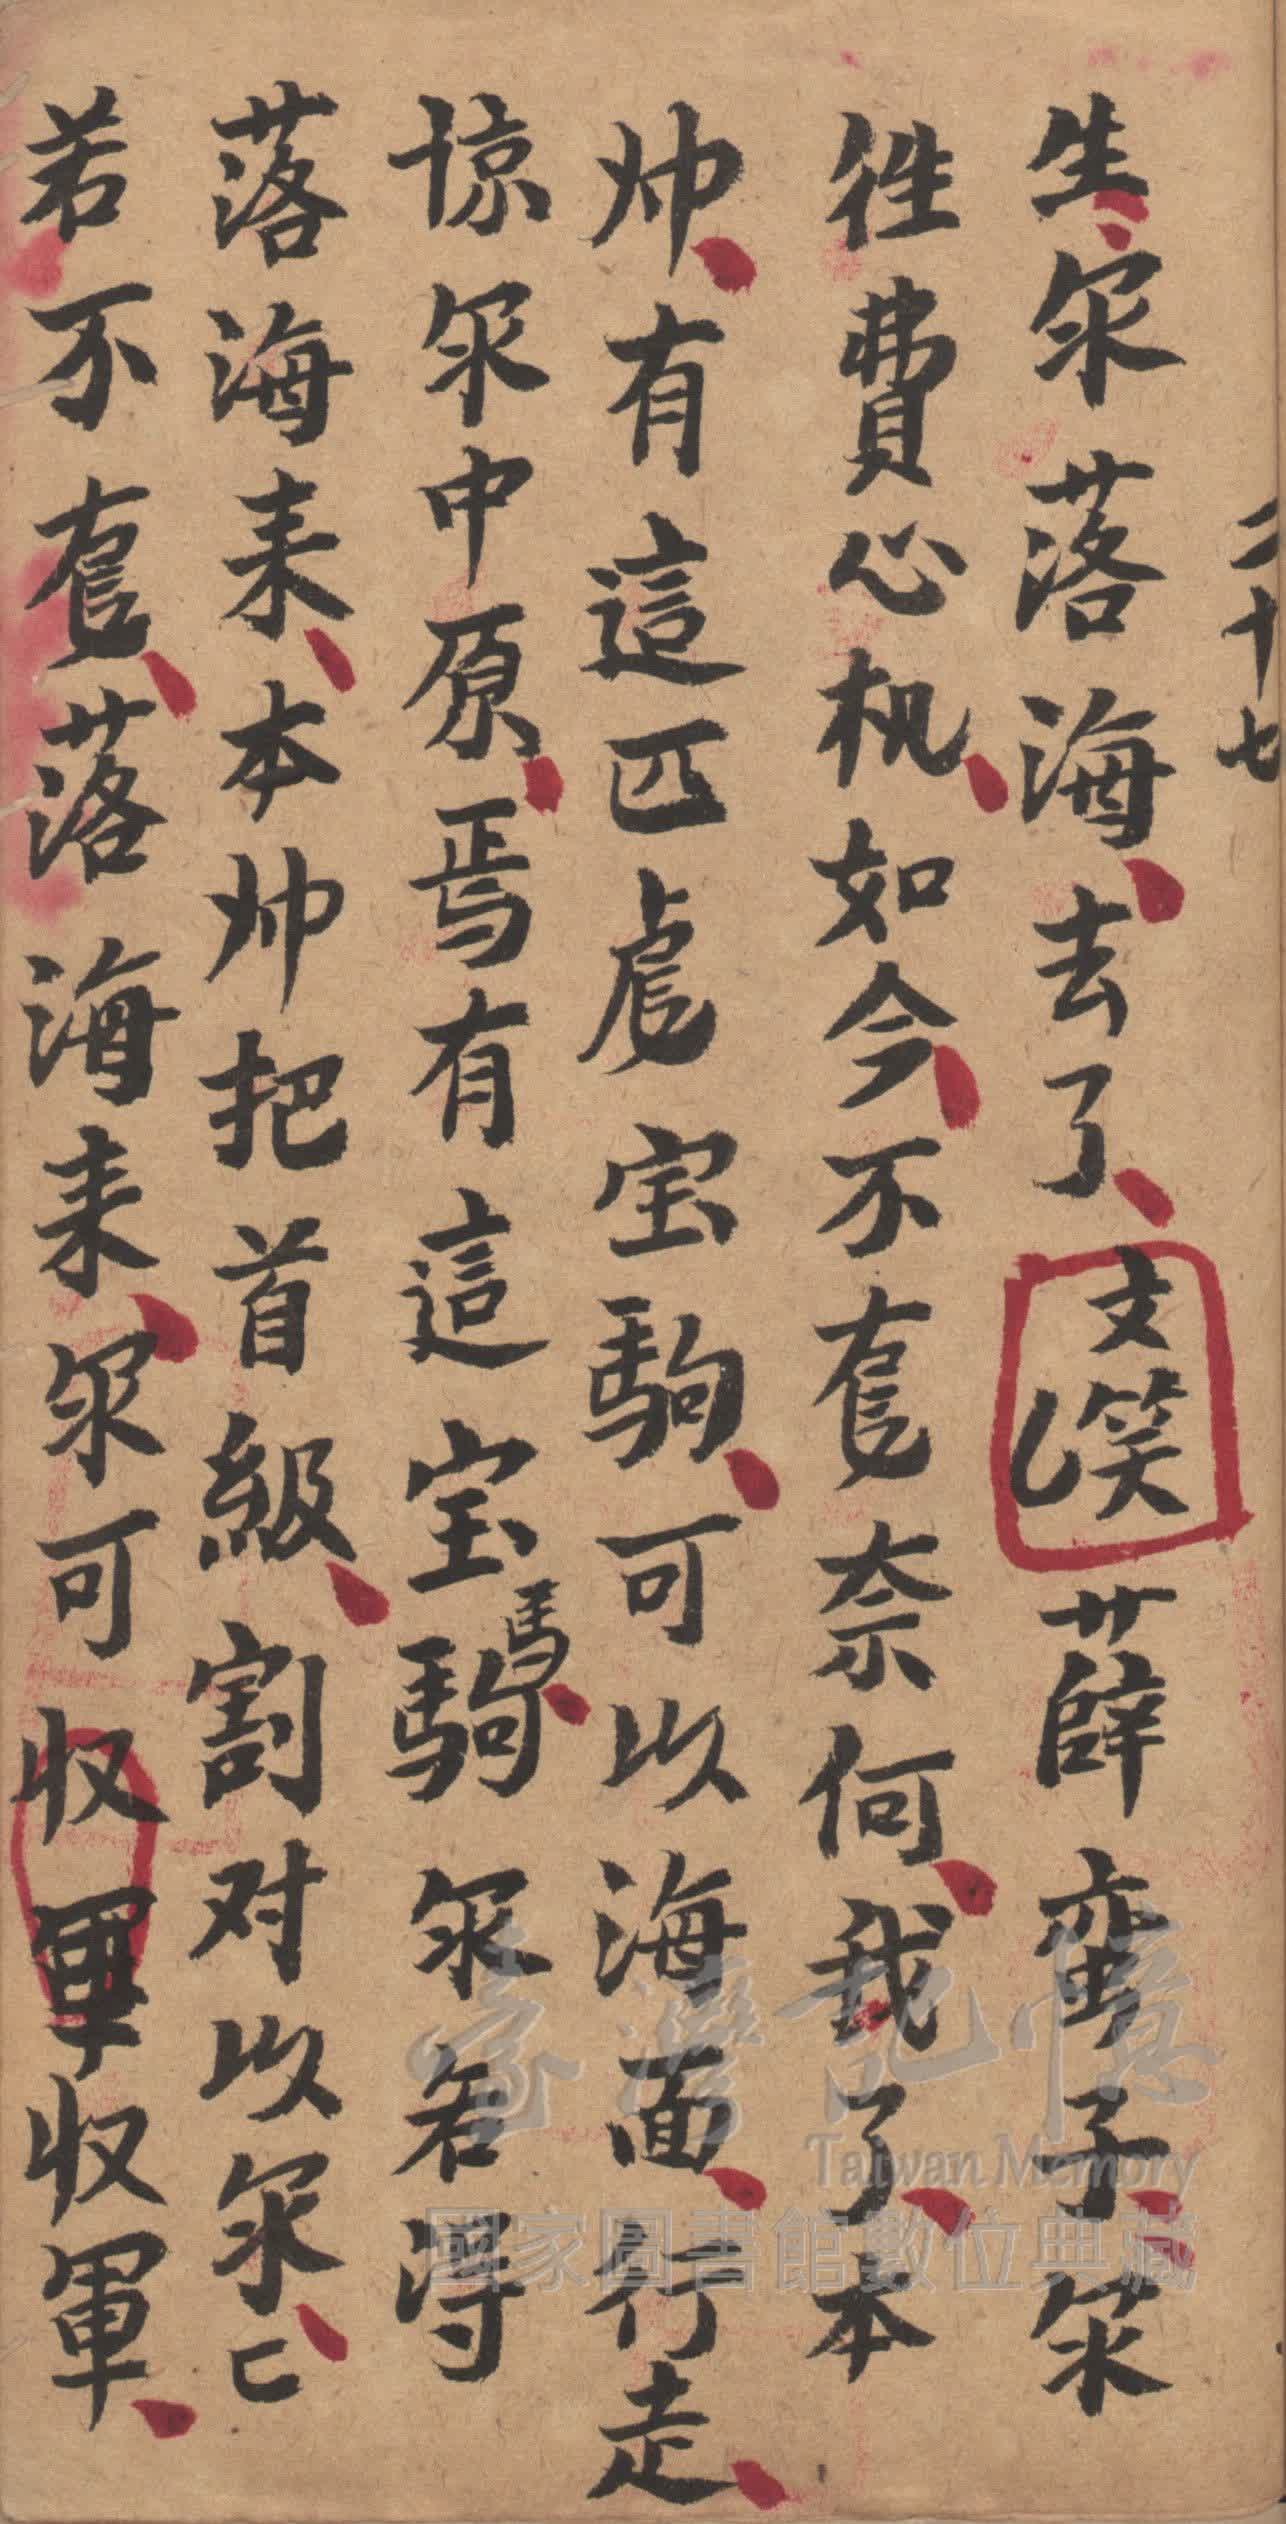 二十七
生尔落海去了文笑薛蛮子尔
徃費心机如今不奈何我了本
帅有這匹虎宝駒可以海面行走
諒尔中原焉有這宝駒馬尔若得
落海来本帅把首級割对以尔匕
若不落海来尔可收軍收軍
臺灣記憶
Taiwan Memory
國家圖書館數位典藏